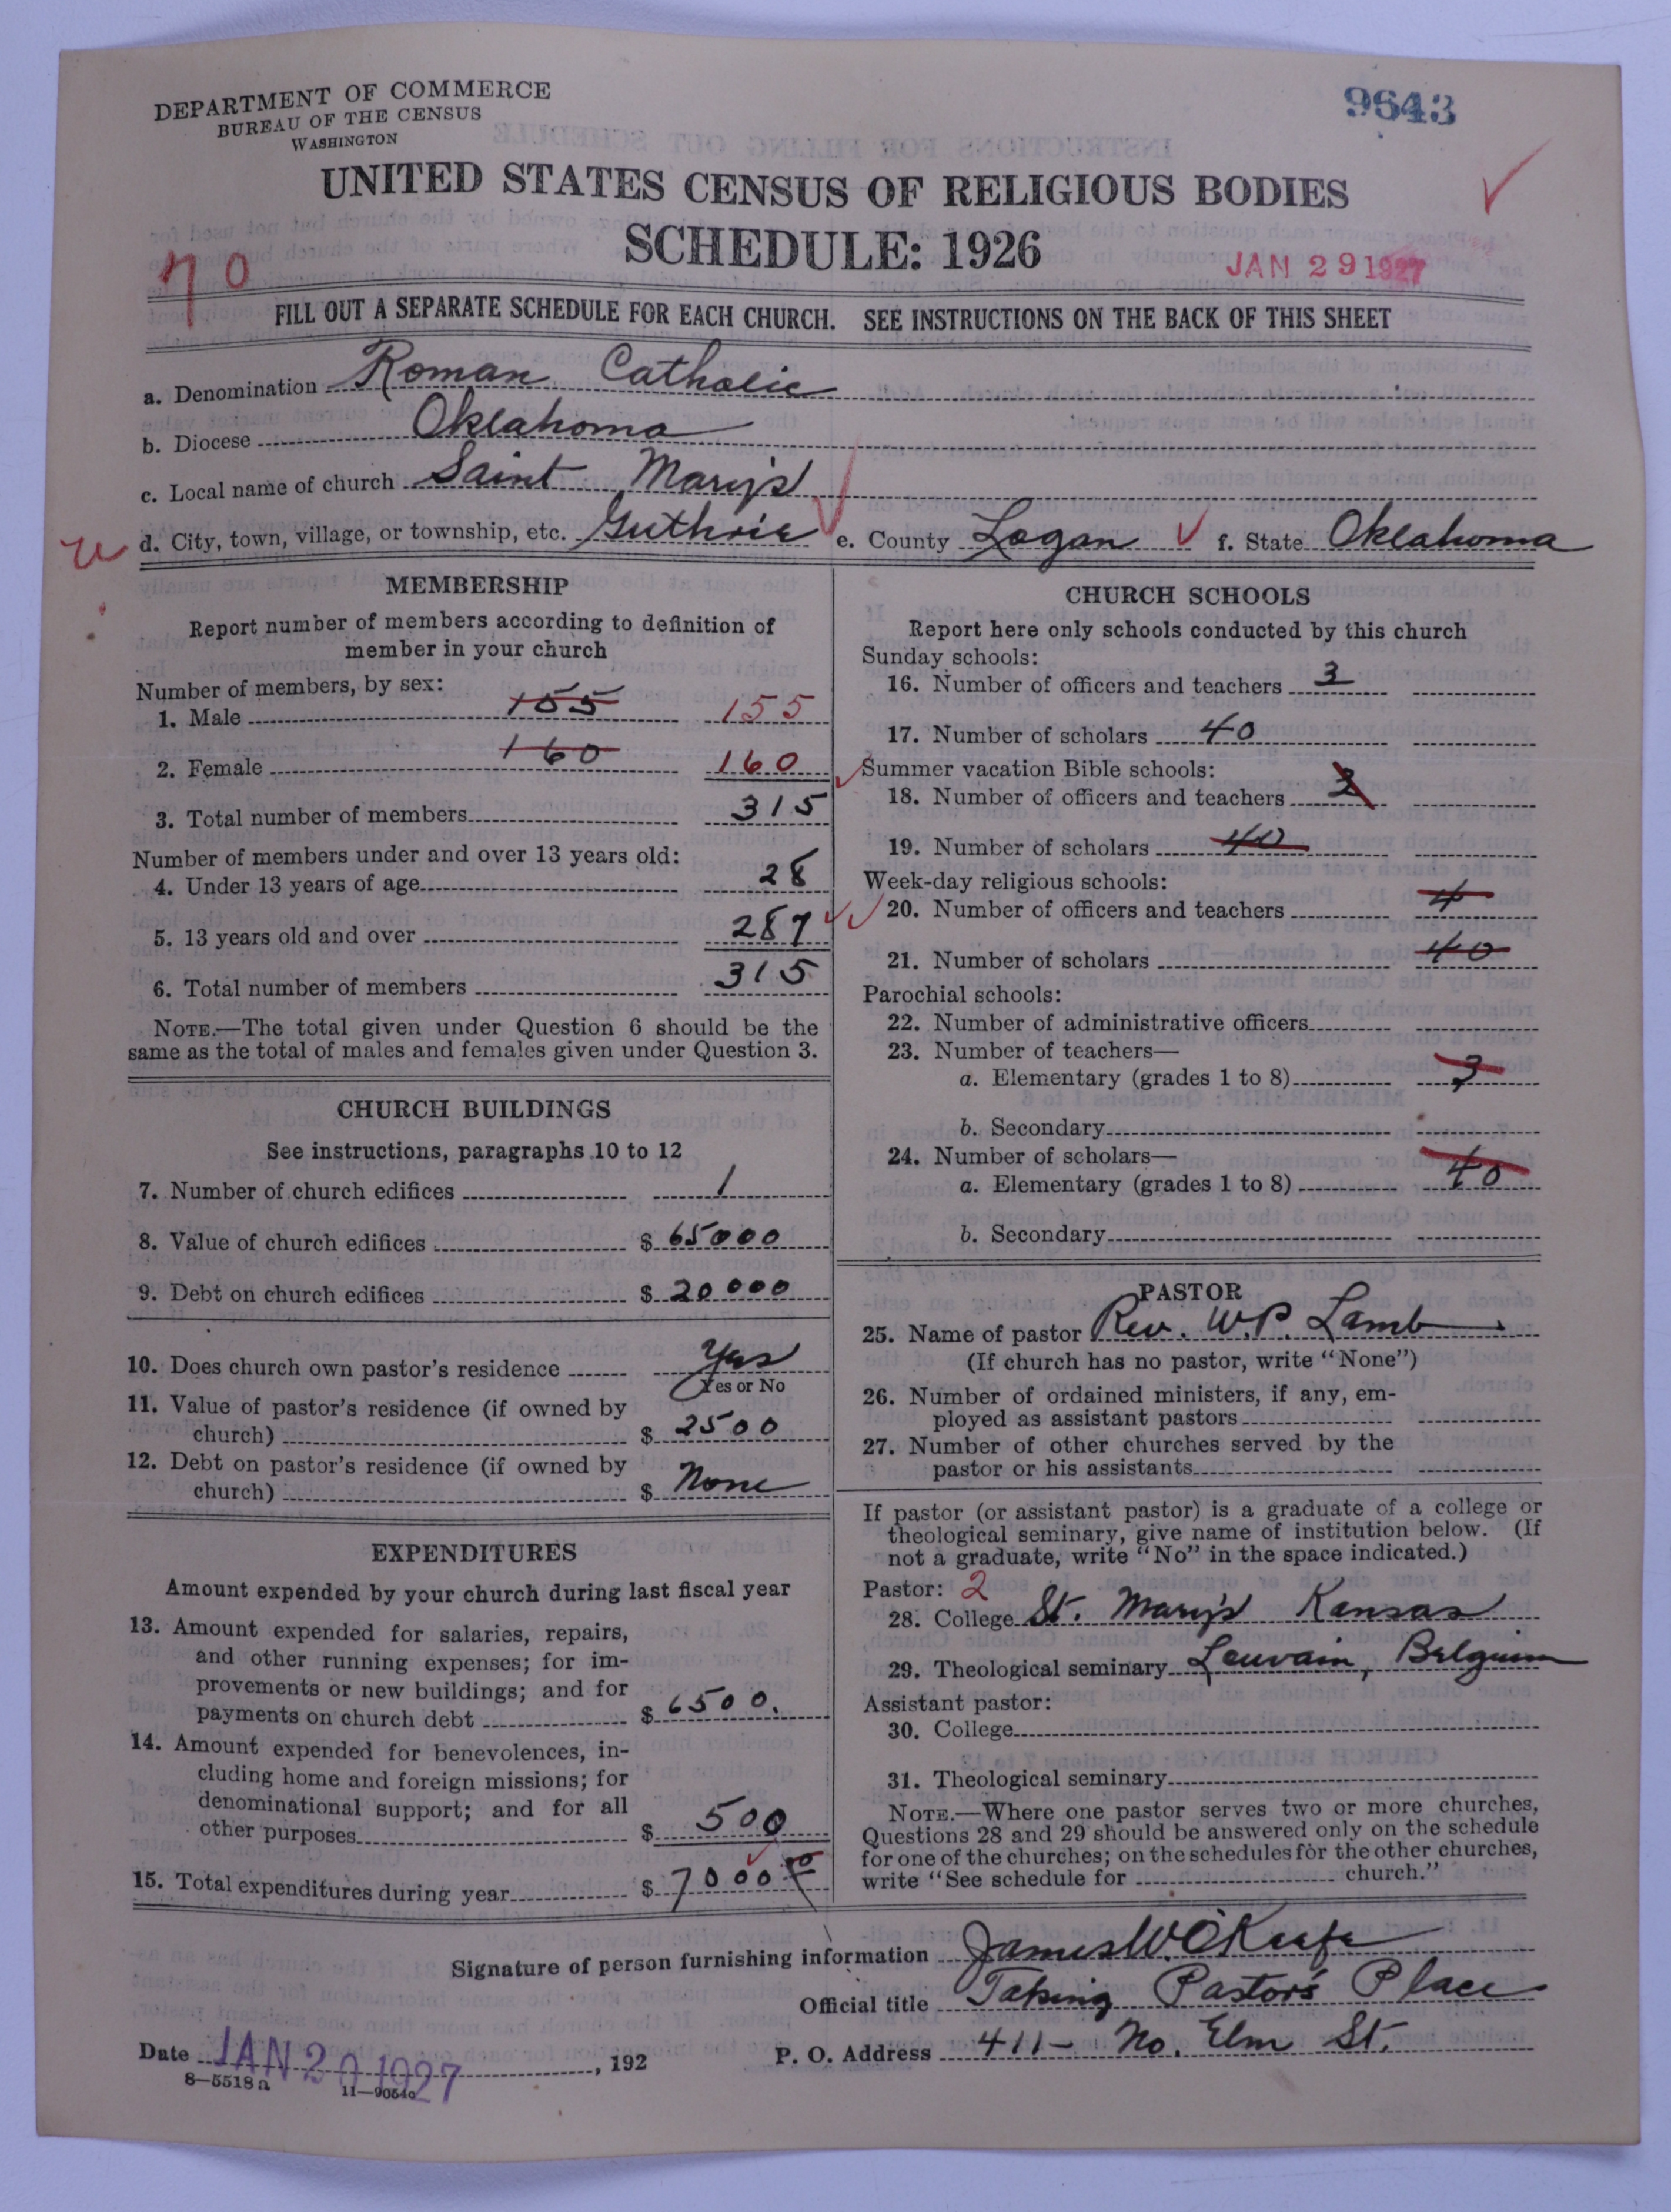 DEPARTMENT OF COMMERCE
BUREAU OF THE CENSUS
WASHINGTON
9643
UNITED STATES CENSUS OF RELIGIOUS BODIES
SCHEDULE: 1926
JAN 29 1927
70
FILL OUT A SEPARATE SCHEDULE FOR EACH CHURCH. SEE INSTRUCTIONS ON THE BACK OF THIS SHEET
a. Denomination Roman Catholic
b. Diocese Oklahoma
c. Local name of church Saint Mary's
d. City, town, village, or township, etc. Guthrie e. County Logan f. State Oklahoma
MEMBERSHIP
Report number of members according to definition of
member in your church
Number of members, by sex:
1. Male 155 155
2. Female 160 160
3. Total number of members 315
Number of members under and over 13 years old:
4. Under 13 years of age 28
5. 13 years old and over 287
6. Total number of members 315
NOTE.—The total given under Question 6 should be the
same as the total of males and females given under Question 3.
CHURCH BUILDINGS
See instructions, paragraphs 10 to 12
7. Number of church edifices 1
8. Value of church edifices $ 65000
9. Debt on church edifices $ 20000
10. Does church own pastor's residence Yes
Yes or No
11. Value of pastor's residence (if owned by
church) $ 2500
12. Debt on pastor's residence (if owned by
church) $ None
EXPENDITURES
Amount expended by your church during last fiscal year
13. Amount expended for salaries, repairs,
and other running expenses; for im-
provements or new buildings; and for
payments on church debt $ 6500.
14. Amount expended for benevolences, in-
cluding home and foreign missions; for
denominational support; and for all
other purposes $ 500
15. Total expenditures during year $ 7000
CHURCH SCHOOLS
Report here only schools conducted by this church
Sunday schools:
16. Number of officers and teachers 3
17. Number of scholars 40
Summer vacation Bible schools:
18. Number of officers and teachers 3
19. Number of scholars 40
Week-day religious schools:
20. Number of officers and teachers 4
21. Number of scholars 40
Parochial schools:
22. Number of administrative officers
23. Number of teachers—
a. Elementary (grades 1 to 8) 3
b. Secondary
24. Number of scholars—
a. Elementary (grades 1 to 8) 40
b. Secondary
PASTOR
25. Name of pastor Rev. W.P. Lamb
(If church has no pastor, write "None")
26. Number of ordained ministers, if any, em-
ployed as assistant pastors
27. Number of other churches served by the
pastor or his assistants
If pastor (or assistant pastor) is a graduate of a college or
theological seminary, give name of institution below. (If
not a graduate, write "No" in the space indicated.)
Pastor: 2
28. College St. Mary's Kansas
29. Theological seminary Louvain, Belgium
Assistant pastor:
30. College
31. Theological seminary
NOTE.—Where one pastor serves two or more churches,
Questions 28 and 29 should be answered only on the schedule
for one of the churches; on the schedules for the other churches,
write "See schedule for church."
Signature of person furnishing information James W. O'Keefe
Official title Taking Pastor's Place
Date JAN 20 1927, 192 P. O. Address 411- No. Elm St.
8—5518a 11—9054a